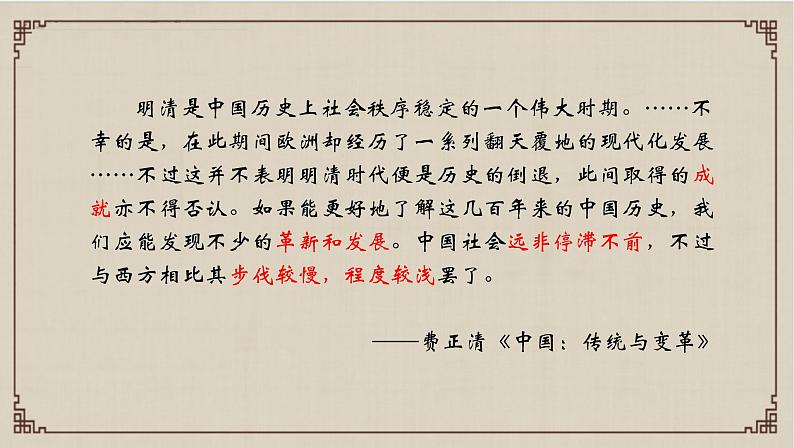 明清是中国历史上社会秩序稳定的一个伟大时期。……不
幸的是，在此期间欧洲却经历了一系列翻天覆地的现代化发展
……不过这并不表明明清时代便是历史的倒退，此间取得的成
就亦不得否认。如果能更好地了解这几百年来的中国历史，我
们应能发现不少的革新和发展。中国社会远非停滞不前，不过
与西方相比其步伐较慢，程度较浅罢了。
——费正清《中国：传统与变革》